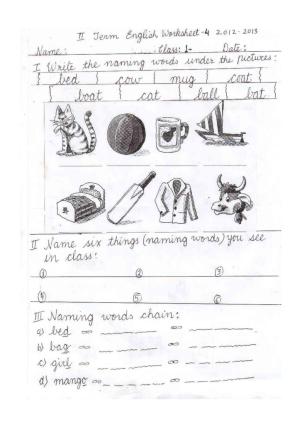 II Term English Worksheet-4 2012-2013
Name: Class: 1- Date:
I Write the naming words under the pictures:
bed | cow | mug | coat
boat | cat | ball | bat
II Name six things (naming words) you see
in class:
① ② ③
④ ⑤ ⑥
III Naming words chain:
a) bed
b) bag
c) girl
d) mango